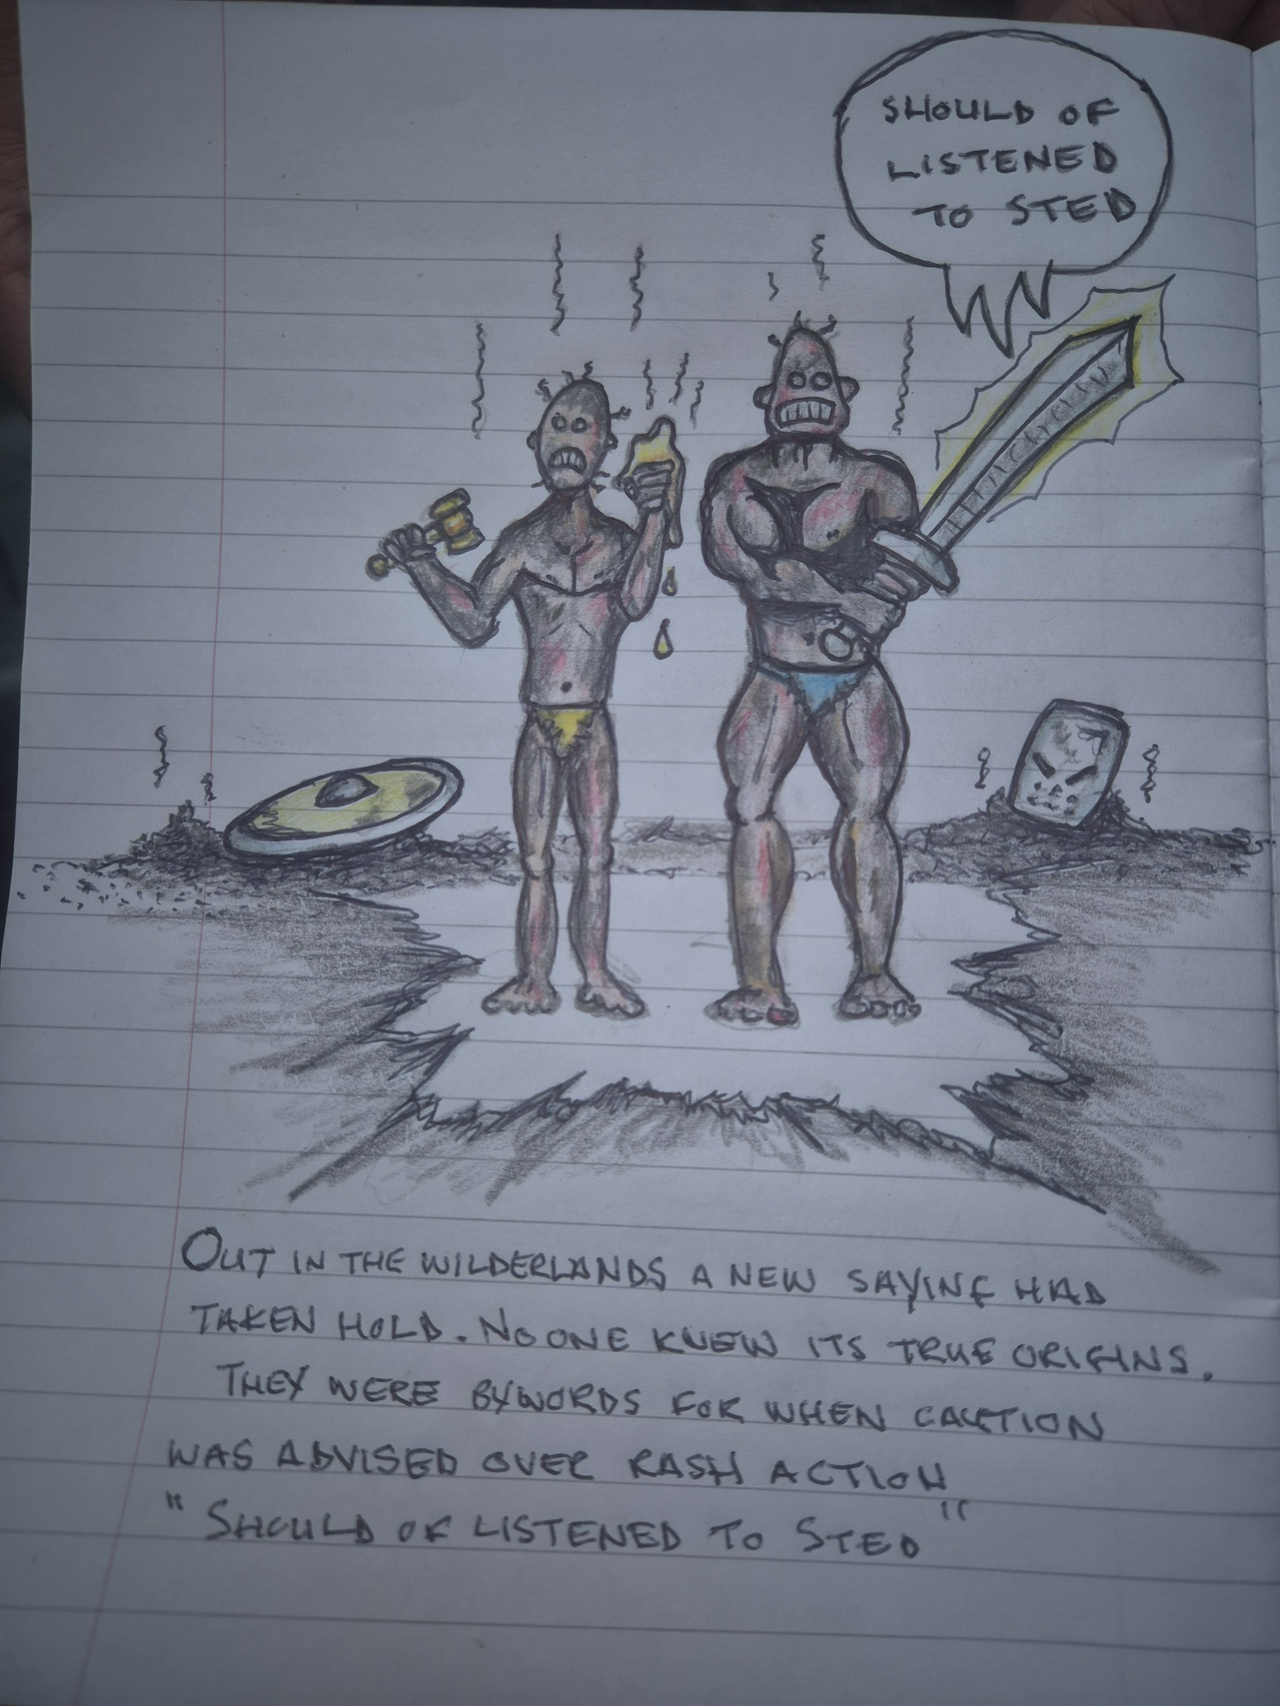 SHOULD OF
LISTENED
TO STED
OUT IN THE WILDERLANDS A NEW SAYING HAD
TAKEN HOLD. NO ONE KNEW ITS TRUE ORIGINS.
THEY WERE BYWORDS FOR WHEN CAUTION
WAS ADVISED OVER RASH ACTION
"SHOULD OF LISTENED TO STED"